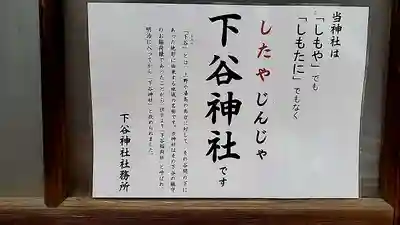 当神社は
「しもや」でも
「しもたに」でもなく
したやじんじゃ
下谷神社です
「下谷」とは、上野や湯島の高台に対して、その谷間の下に
あった地形に由来する地域の名前です。当神社はその下谷の鎮守
のお稲荷様であったことから、
「下谷稲荷社」と呼ばれ
明治に入ってから「下谷神社」と改められました。
下谷神社社務所